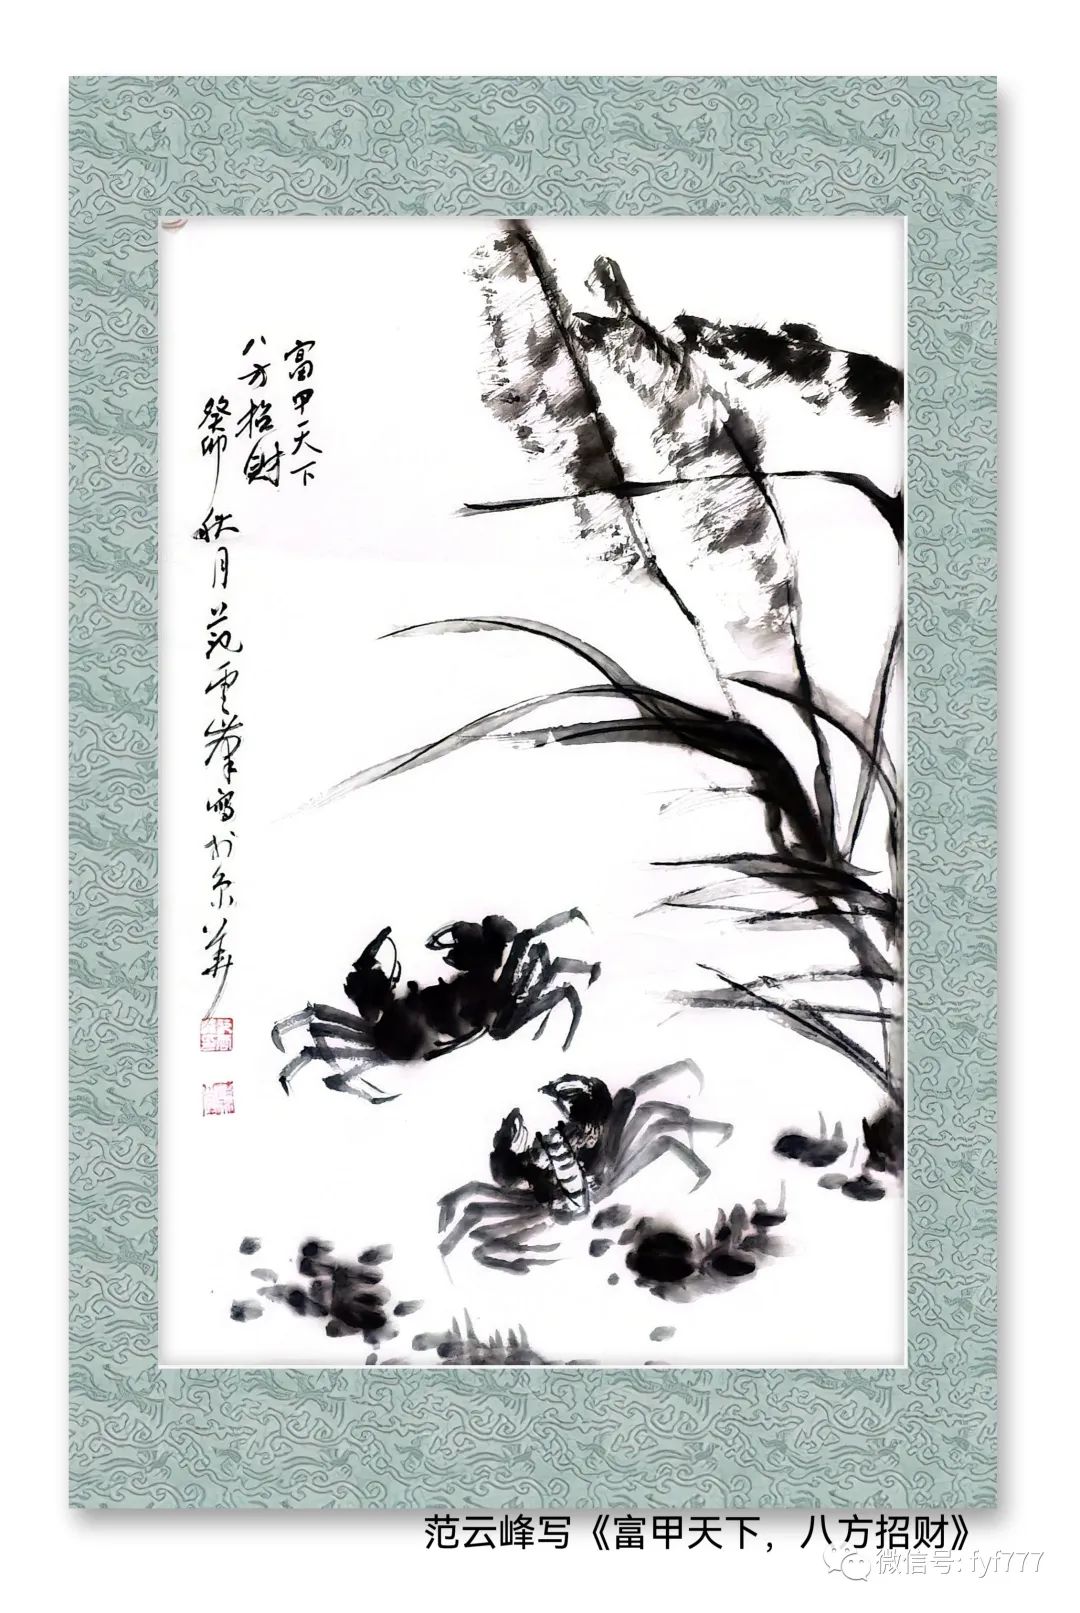 富甲天下
八方招財
癸卯秋月范雲峯寫於京華
范云峰写《富甲天下，八方招财》
微信号: fyf777